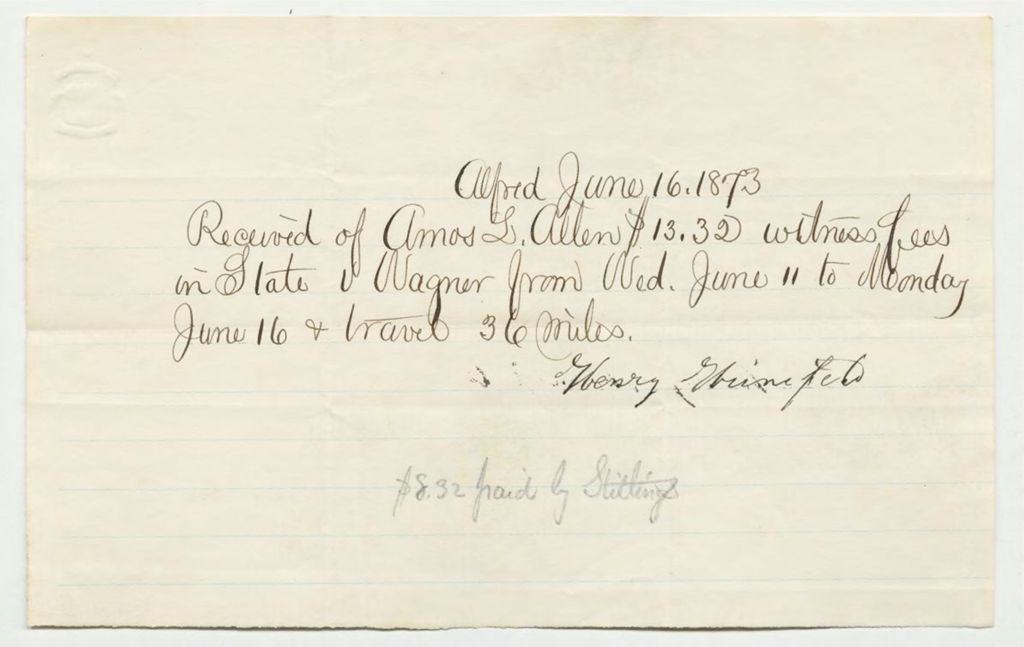 Alfred June 16. 1873
Received of Amos L. Allen $13.32 witness fees
in State v Wagner from Wed. June 11 to Monday
June 16 & travel 36 miles.
Henry
$8.32 paid by Stillings